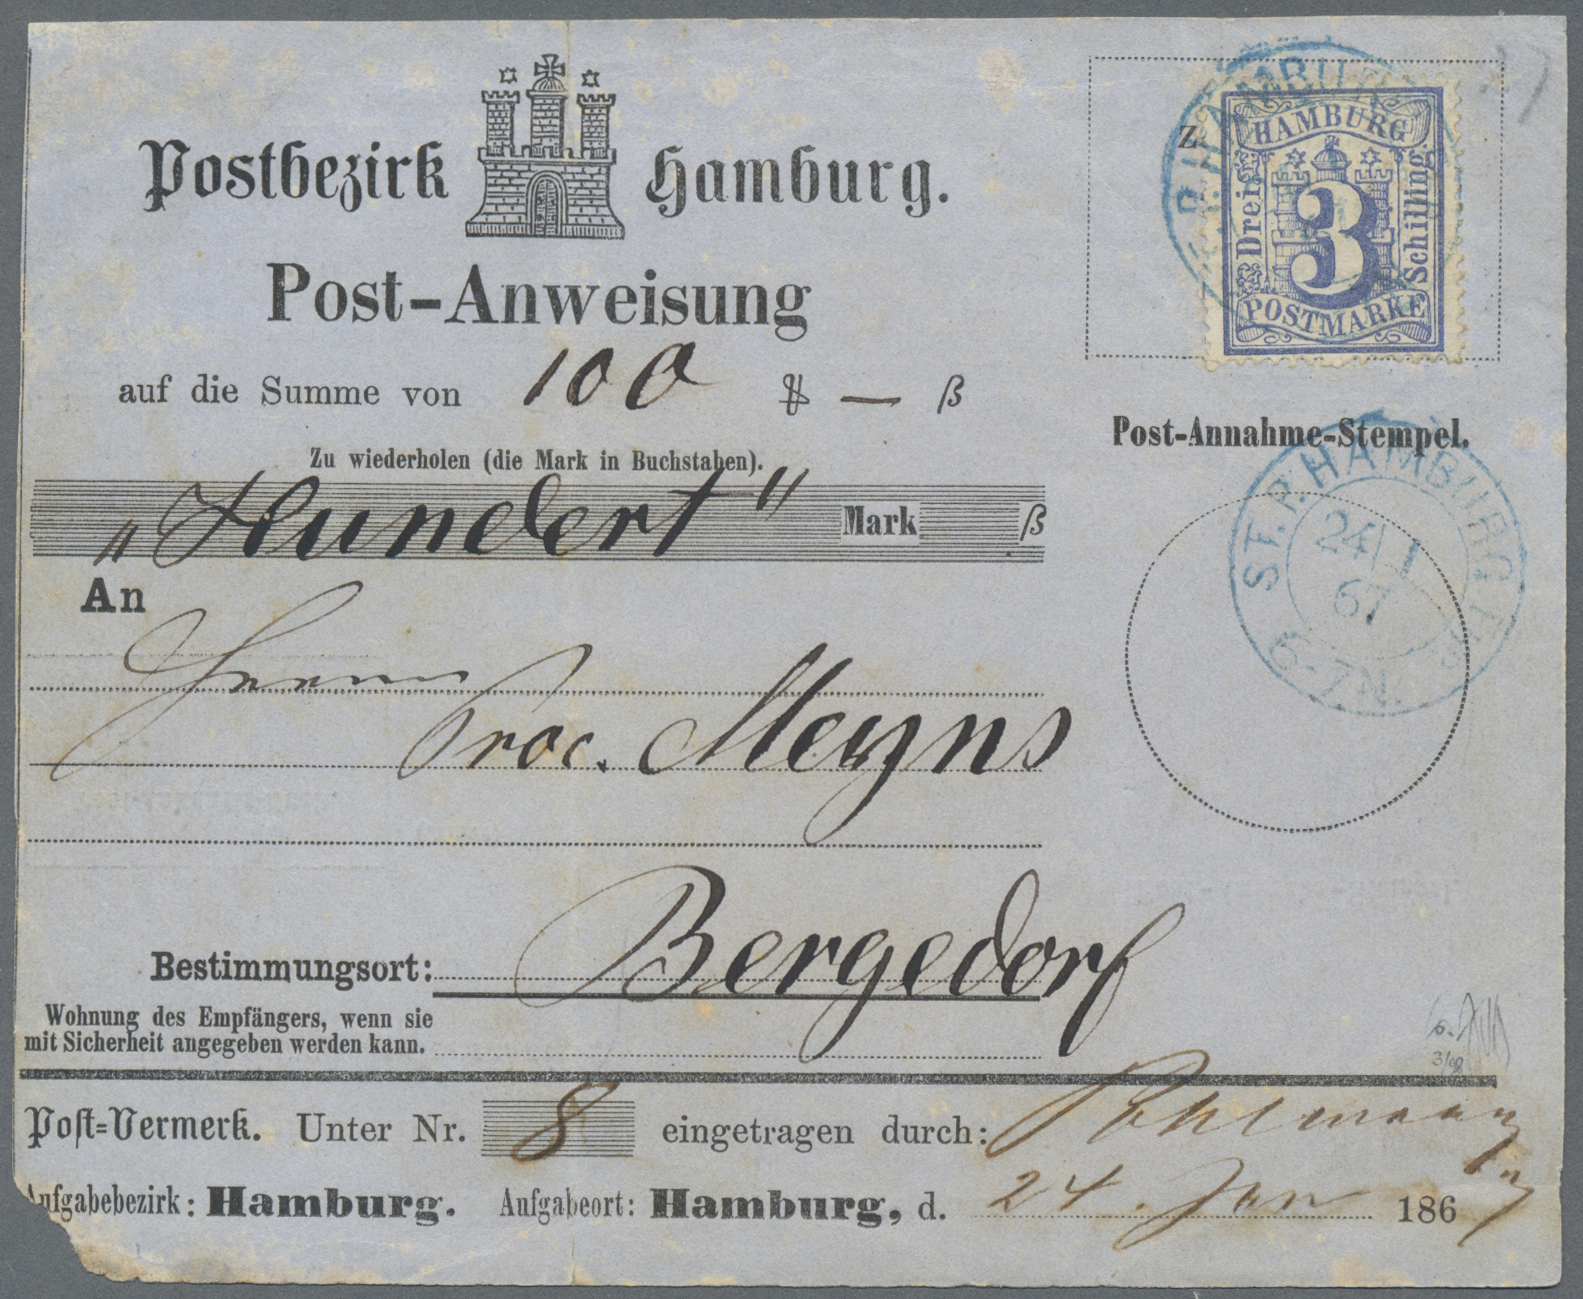 Postbezirk Hamburg.
Post-Anweisung
auf die Summe von 100 — ß
Zu wiederholen (die Mark in Buchstaben).
„Hundert" Mark ß
An
Herrn
Proc. Meyns
Bestimmungsort: Bergedorf
Wohnung des Empfängers, wenn sie
mit Sicherheit angegeben werden kann.
Post-Vermerk. Unter Nr. 8 eingetragen durch: Pohlmann
Aufgabebezirk: Hamburg. Aufgabeort: Hamburg, d. 24. Jan 1867
HAMBURG
Drei 3 Schilling.
POSTMARKE
Post-Annahme-Stempel.
ST. P. HAMBURG
24 1
67
6-7 N.